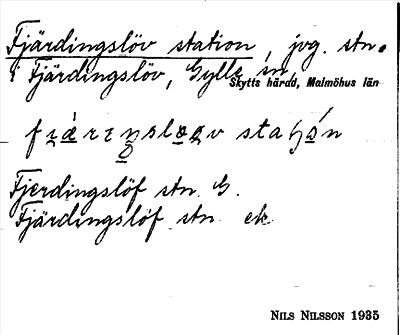 Fjärdingslöv station, jvg. stn.
i Fjärdingslöv, Gylle sn,
Skytts härad, Malmöhus län
Fjerdingslöf stn. G.
Fjärdingslöf stn ek
NILS NILSSON 1935